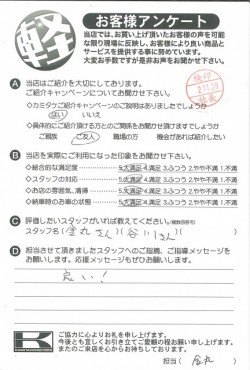 軽
お客様アンケート
当店では、お買い上げ頂いたお客様の声を可能
な限り現場に反映し、お客様により良い商品と
サービスを提供する事に努めています。
大変お手数ですが是非お声をお聞かせ下さい。
A 当店はご紹介を大切にしております。
ご紹介キャンペーンについてお聞かせ下さい。
◇カミタケご紹介キャンペーンのご説明はありましたでしょうか
はい いいえ
◇具体的にご紹介頂ける方とのご関係をお聞かせ頂けますでしょうか
ご親族 ご友人 職場の方 機会があれば紹介したい
B 当店を実際にご利用になった印象をお聞かせ下さい。
◇総合的な満足度 5.大満足 4.満足 3.ふつう 2.やや不満 1.不満
◇スタッフの対応 5.大満足 4.満足 3.ふつう 2.やや不満 1.不満
◇お店の雰囲気、清掃 5.大満足 4.満足 3.ふつう 2.やや不満 1.不満
◇納車時のお車の状態 5.大満足 4.満足 3.ふつう 2.やや不満 1.不満
C 評価したいスタッフがいれば教えてください。(複数回答可)
スタッフ名(金丸さん)(谷川さん)
D 担当させて頂きましたスタッフへのご指摘、ご指導メッセージを
お願いします。応援メッセージもぜひお願いします。
良い!
ご協力に心よりお礼を申し上げます。
今後とも宜しくお引き立てご愛顧の程お願い申し上げます。
またのご来店を心からお待ちしております。
担当(金丸)